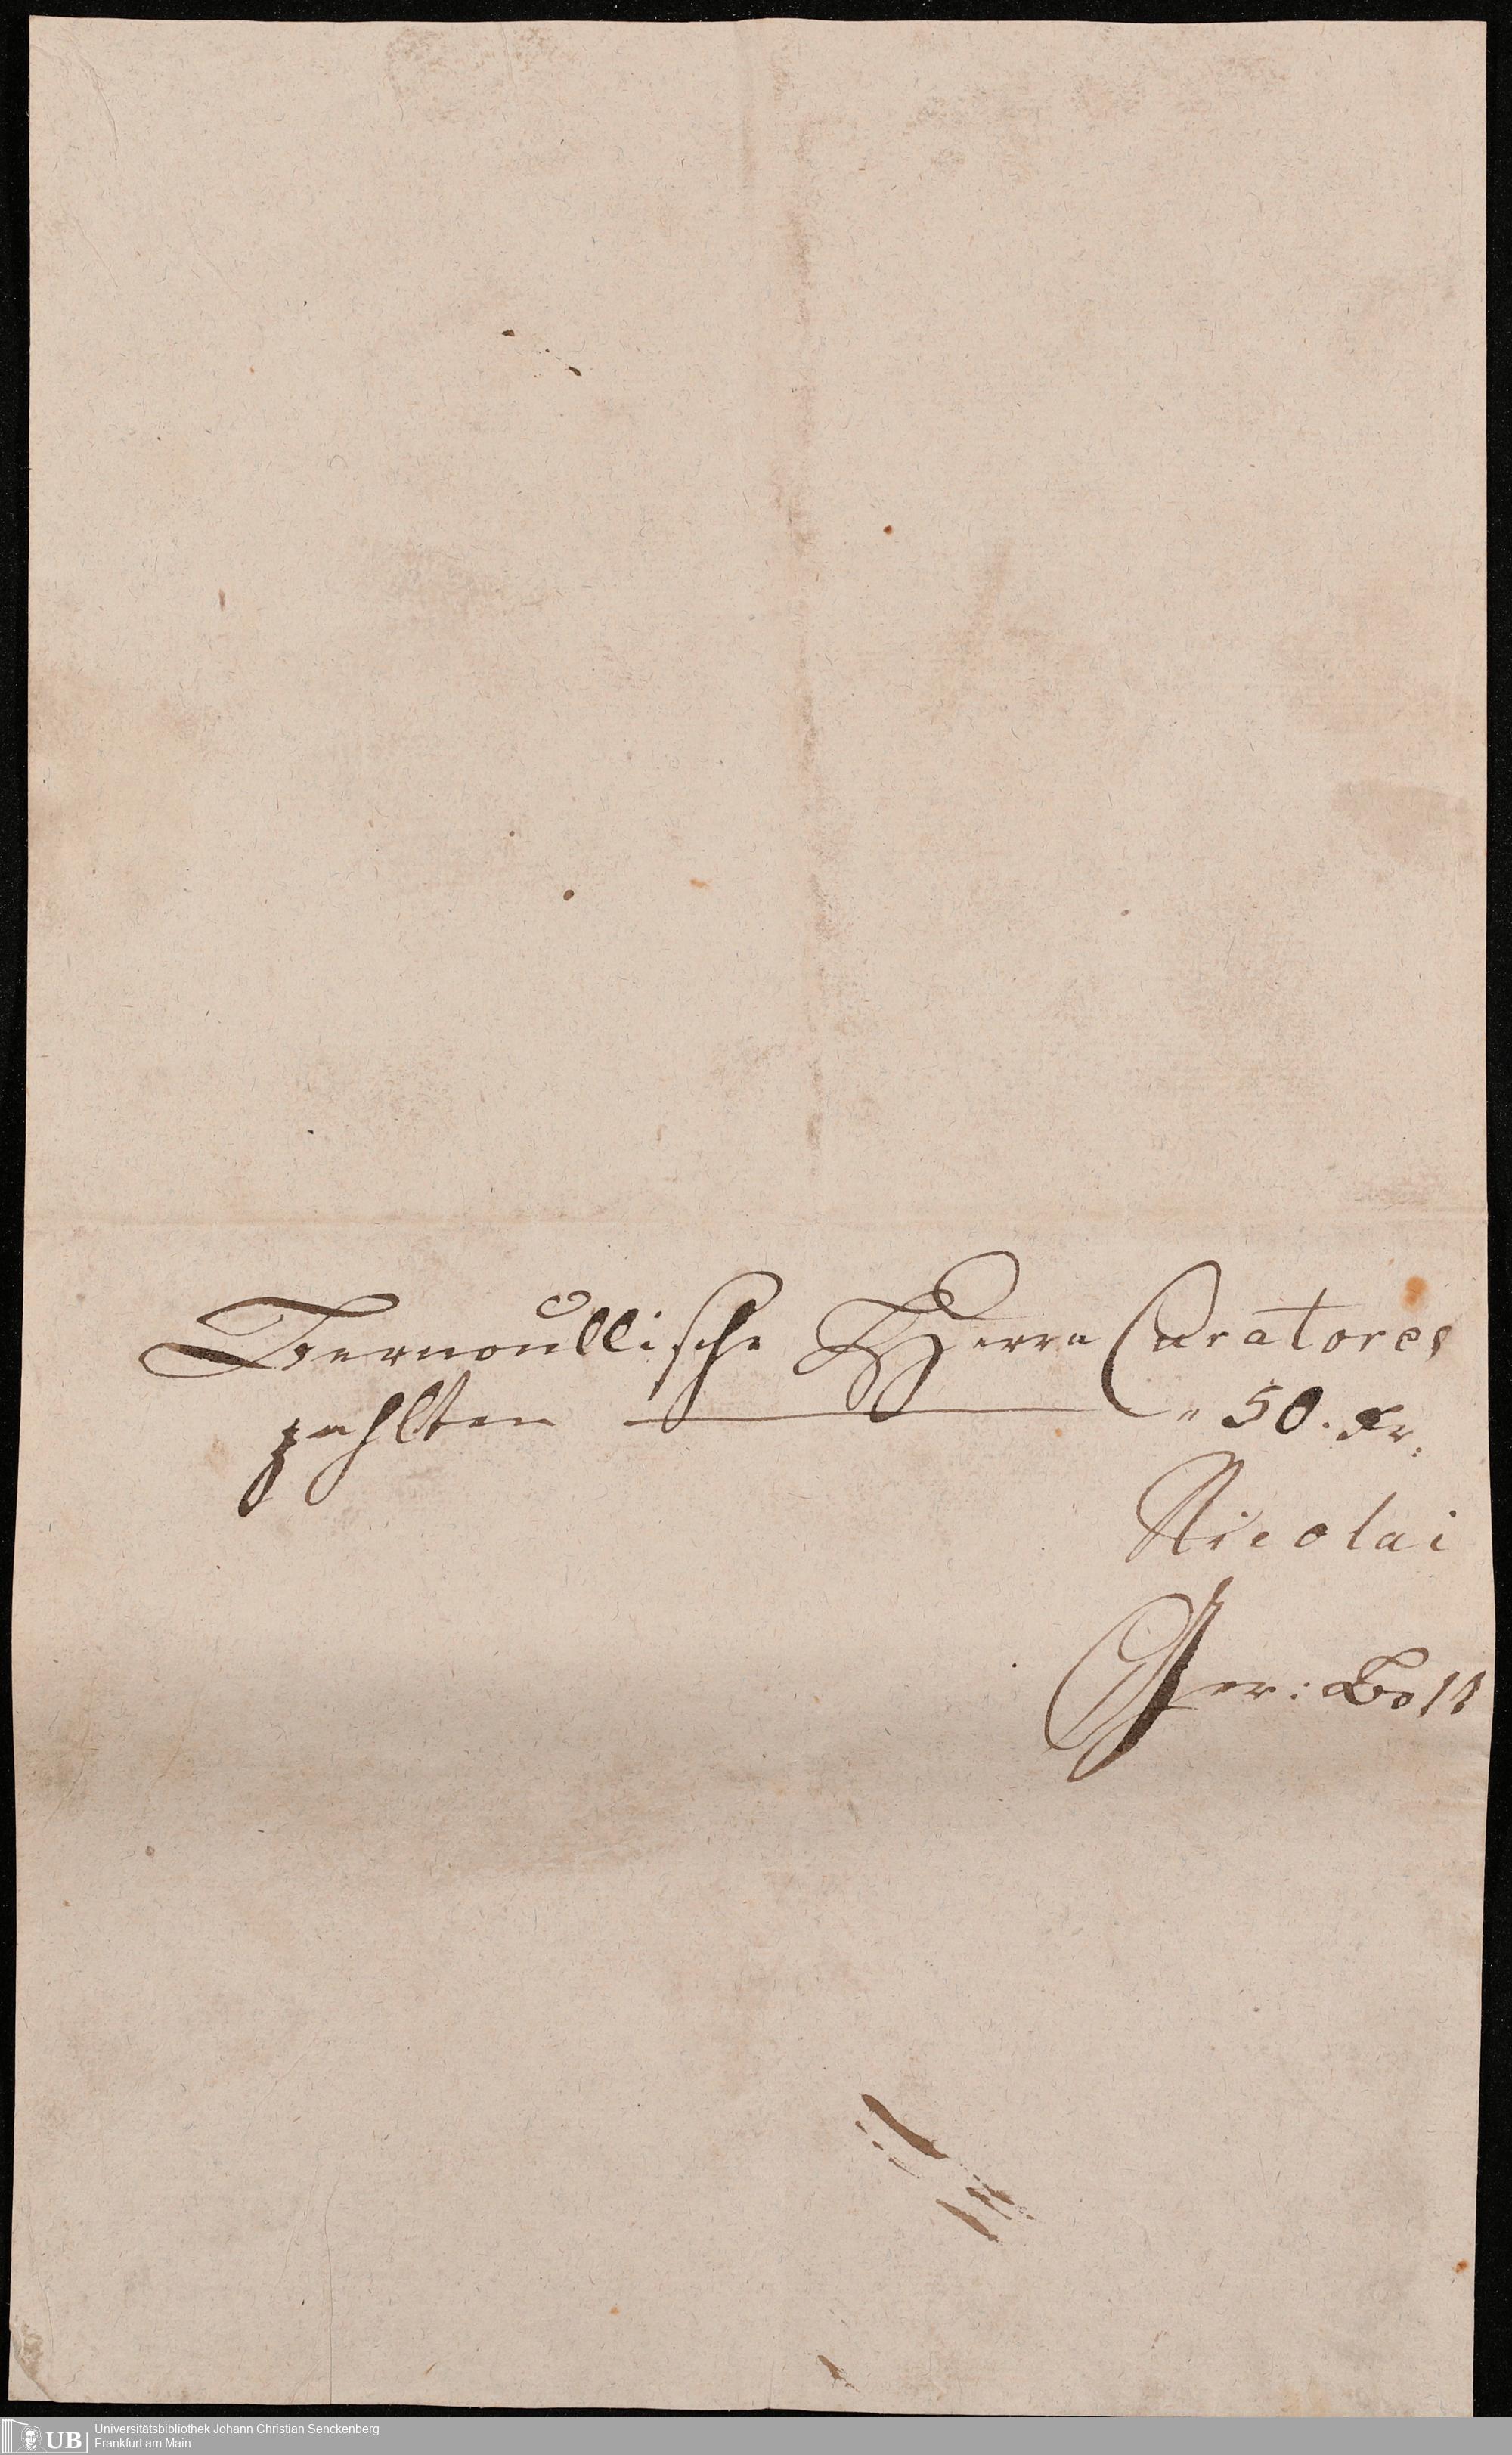 Bernoullische Herrn Curatores
zahlten — " 50. Kr:
Nicolai
Ger: Bott
UB Universitätsbibliothek Johann Christian Senckenberg
Frankfurt am Main